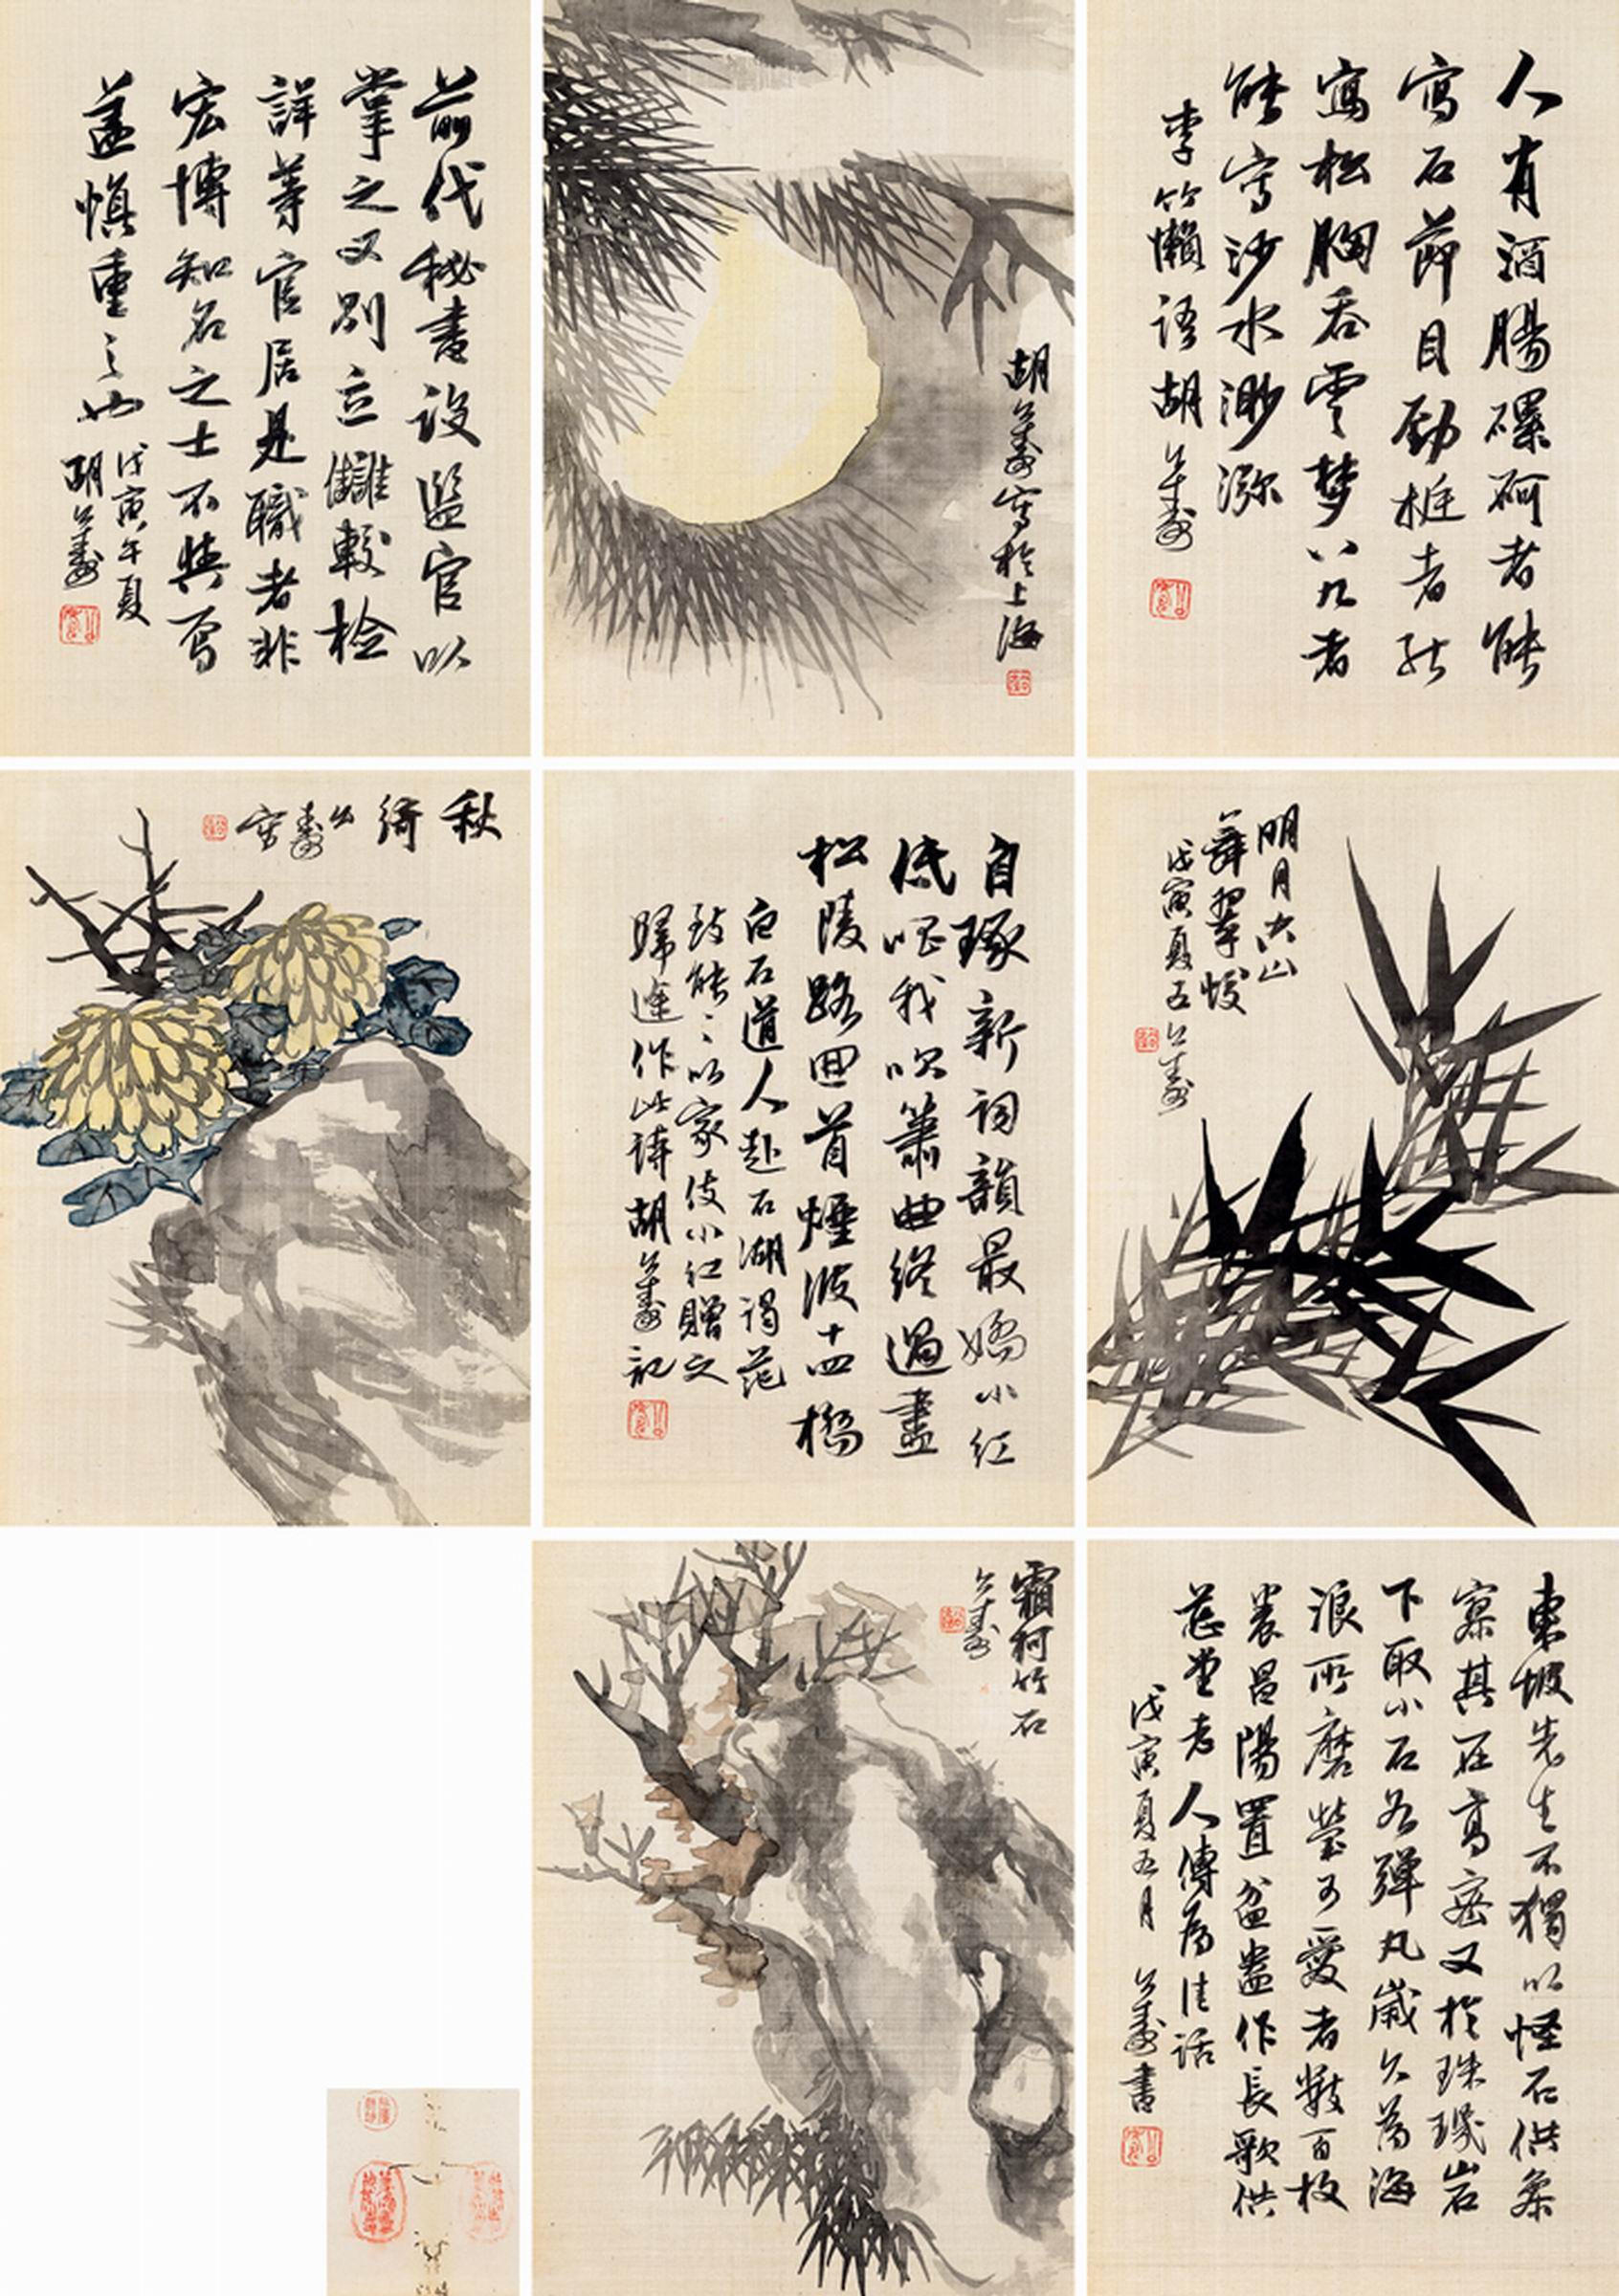 人有酒腸磥砢者能
寫石節目勁梃者能
寫松胸吞雲夢八九者
能寫沙水渺弥
李竹嬾語胡公壽
胡公壽寫於上海
前代秘書設監官以
掌之又別立讎較檢
詳等官居是職者非
宏博知名之士不與焉
蓋慎重之也
戊寅午夏
胡公壽
明月空山
舞翠蛟
戊寅夏五公壽
自琢新詞韻最嬌小紅
低唱我吹簫曲終過盡
松陵路回首煙波十四橋
白石道人赴石湖謁范
致能以家伎小紅贈之
歸途作此詩胡公壽記
秋綺公壽寫
東坡先生不獨以怪石供參
寥其在高密又於珠璣岩
下取小石如彈丸歲久為海
浪所磨瑩可愛者數百枚
養昌陽置盆盎作長歌供
慈堂老人傳為佳話
戊寅夏五月 公壽書
霜柯竹石
公壽